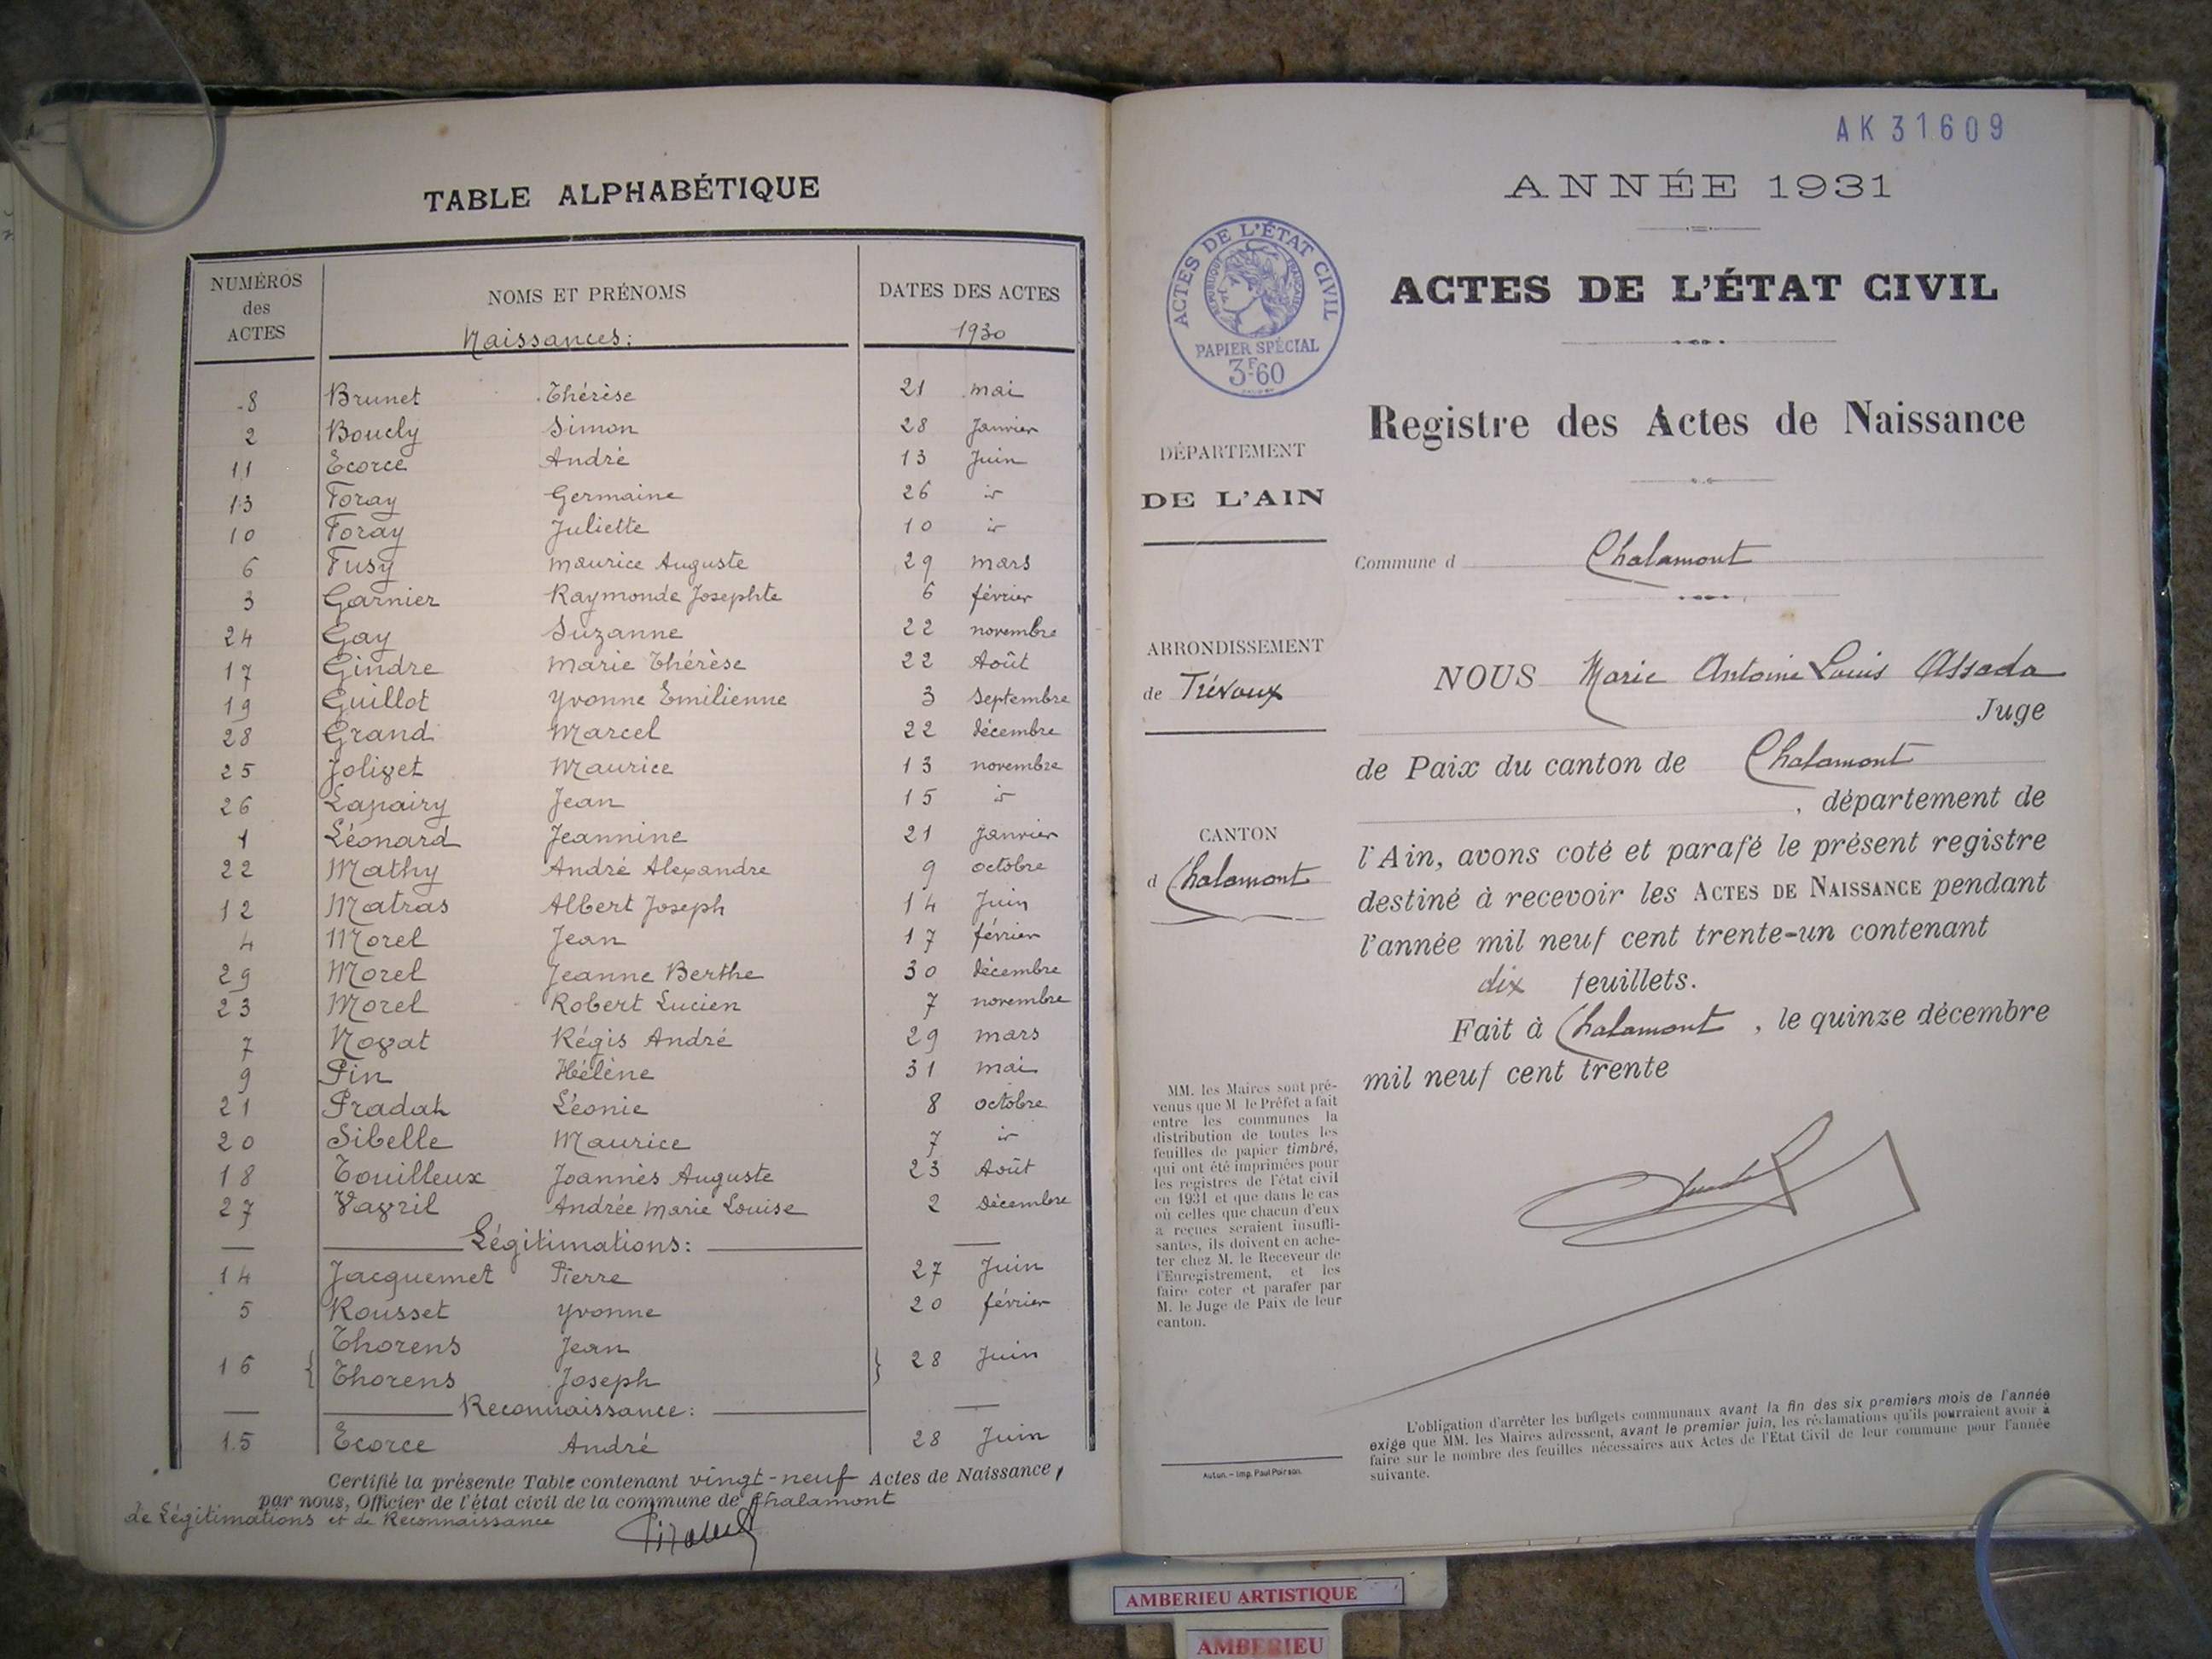 TABLE ALPHABÉTIQUE
NUMÉROS des ACTES
NOMS ET PRÉNOMS
DATES DES ACTES
Naissances:
1930
8 Brunet Thérèse 21 mai
2 Boucly Simon 28 Janvier
11 Ecorce André 13 Juin
13 Foray Germaine 26 id
10 Foray Juliette 10 id
6 Fusy Maurice Auguste 29 mars
3 Garnier Raymonde Josephte 6 février
24 Gay Suzanne 22 novembre
17 Gindre Marie Thérèse 22 Août
19 Guillot Yvonne Emilienne 3 Septembre
28 Grand Marcel 22 décembre
25 Jolivet Maurice 13 novembre
26 Lapairy Jean 15 id
1 Léonard Jeannine 21 Janvier
22 Mathy André Alexandre 9 octobre
12 Matras Albert Joseph 14 Juin
4 Morel Jean 17 février
29 Morel Jeanne Berthe 30 décembre
23 Morel Robert Lucien 7 novembre
7 Novat Régis André 29 mars
9 Pin Hélène 31 mai
21 Pradat Léonie 8 octobre
20 Sibelle Maurice 7 id
18 Touilleux Joannès Auguste 23 Août
27 Vavril Andrée Marie Louise 2 Décembre
Légitimations:
14 Jacquemet Pierre 27 Juin
5 Rousset Yvonne 20 février
Thorens Jean
16 28 Juin
Thorens Joseph
Reconnaissance:
15 Ecorce André 28 Juin
Certifié la présente Table contenant vingt-neuf Actes de Naissance,
par nous, Officier de l'état civil de la commune de Chalamont
de Légitimations et de Reconnaissance
AK 31609
ANNÉE 1931
ACTES DE L'ÉTAT CIVIL
RÉPUBLIQUE FRANÇAISE
PAPIER SPÉCIAL
3F60
ACTES DE L'ÉTAT CIVIL
Registre des Actes de Naissance
DÉPARTEMENT
DE L'AIN
Commune d Chalamont
ARRONDISSEMENT
de Trévoux
CANTON
d Chalamont
NOUS Marie Antoine Louis Assada
Juge
de Paix du canton de Chalamont
, département de
l'Ain, avons coté et parafé le présent registre
destiné à recevoir les ACTES DE NAISSANCE pendant
l'année mil neuf cent trente-un contenant
dix feuillets.
Fait à Chalamont, le quinze décembre
mil neuf cent trente
MM. les Maires sont pré-
venus que M. le Préfet a fait
entre les communes la
distribution de toutes les
feuilles de papier timbré,
qui ont été imprimées pour
les registres de l'état civil
en 1931 et que dans le cas
où celles que chacun d'eux
a reçues seraient insuffi-
santes, ils doivent en ache-
ter chez M. le Receveur de
l'Enregistrement, et les
faire coter et parafer par
M. le Juge de Paix de leur
canton.
Autun. – Imp. Paul Poirson.
L'obligation d'arrêter les budgets communaux avant la fin des six premiers mois de l'année
exige que MM. les Maires adressent, avant le premier juin, les réclamations qu'ils pourraient avoir à
faire sur le nombre des feuilles nécessaires aux Actes de l'Etat Civil de leur commune pour l'année
suivante.
AMBERIEU ARTISTIQUE
AMBERIEU